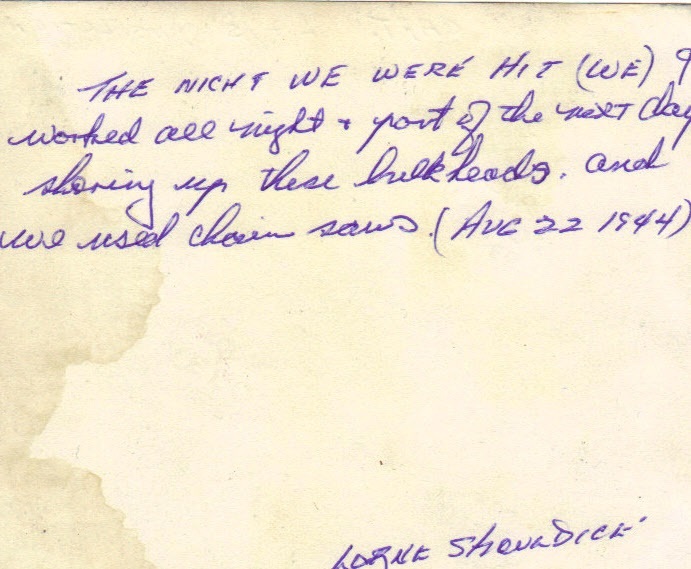 THE NIGHT WE WERE HIT (WE)
worked all night + part of the next day
shoring up these bulkheads. and
we used chain saws. (AUG 22 1944)
LORNE SHOULDICE